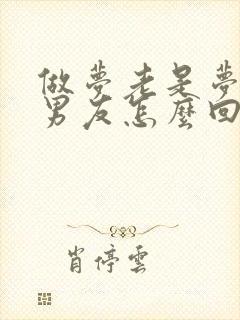 做夢老是夢
男友怎麼回
肖停雲